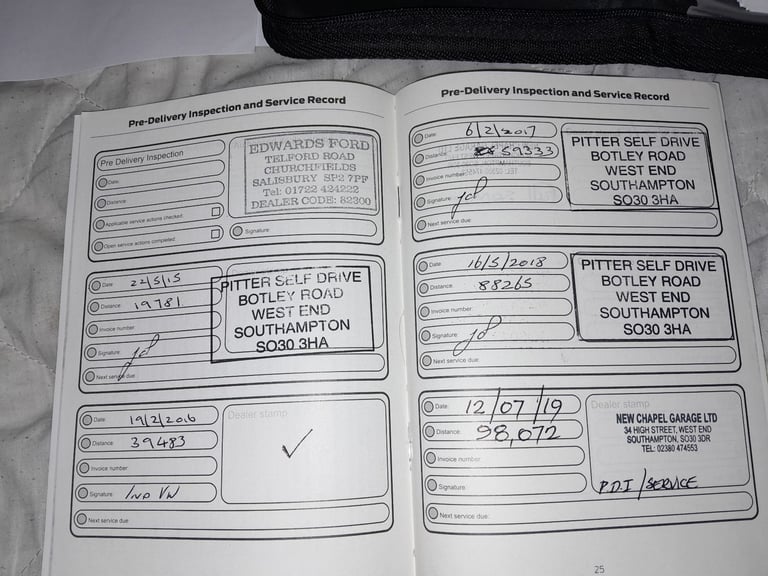 Pre-Delivery Inspection and Service Record
Pre Delivery Inspection
Date:
Distance:
Applicable service actions checked
Open service actions completed
EDWARDS FORD
TELFORD ROAD
CHURCHFIELDS
SALISBURY SP2 7PF
Tel: 01722 424222
DEALER CODE: 82300
Signature:
Date: 22/5/15
Distance: 19781
Invoice number
Signature:
Next service due:
PITTER SELF DRIVE
BOTLEY ROAD
WEST END
SOUTHAMPTON
SO30 3HA
Date: 19/2/2016
Distance: 39483
Invoice number
Signature: IND VW
Next service due:
Dealer stamp
Pre-Delivery Inspection and Service Record
Date: 6/2/2017
Distance: 59333
Invoice number
Signature:
Next service due:
PITTER SELF DRIVE
BOTLEY ROAD
WEST END
SOUTHAMPTON
SO30 3HA
Date: 16/5/2018
Distance: 88265
Invoice number:
Signature:
Next service due:
PITTER SELF DRIVE
BOTLEY ROAD
WEST END
SOUTHAMPTON
SO30 3HA
Date: 12/07/19
Distance: 98,072
Invoice number:
Signature:
Next service due:
Dealer stamp
NEW CHAPEL GARAGE LTD
34 HIGH STREET, WEST END
SOUTHAMPTON, SO30 3DR
TEL: 02380 474553
P.D.I / SERVICE
25